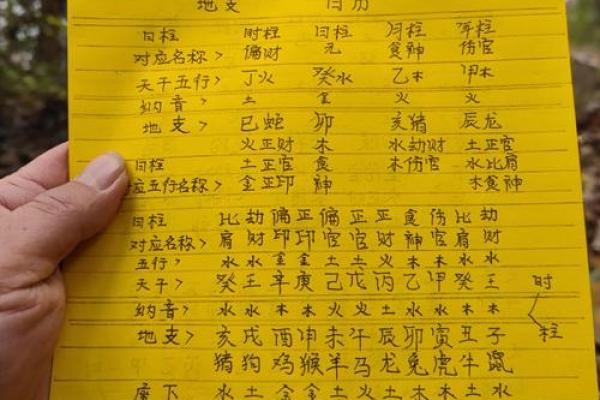 地支
日柱 时柱 日柱 月柱 年柱
对应名称> 偏财 元 食神 伤官
天干五行> 丁火 癸水 乙木 甲木
纳音> 土 金 火 火
地支> 巳蛇 卯 亥猪 辰龙
火正财 木 水劫财 土正官
日柱 土正官 食 木伤官 水比肩
应五行名称> 金正印 神 木食神
日柱 比 劫 偏 正 偏 正 正 食 伤 比 劫
对应名称> 肩 财 印 印 官 官 财 神 官 肩 财
五行> 水 水 金 金 土 土 火 木 木 水 水
天干> 癸 壬 辛 庚 己 戊 丙 乙 甲 癸 壬
纳音> 水 水 木 木 火 火 土 水 水 木 木
地支> 亥 戌 酉 申 未 午 辰 卯 寅 丑 子
猪 狗 鸡 猴 羊 马 龙 兔 虎 牛 鼠
座下 水 土 金 金 土 火 土 木 木 土 水
时
柱